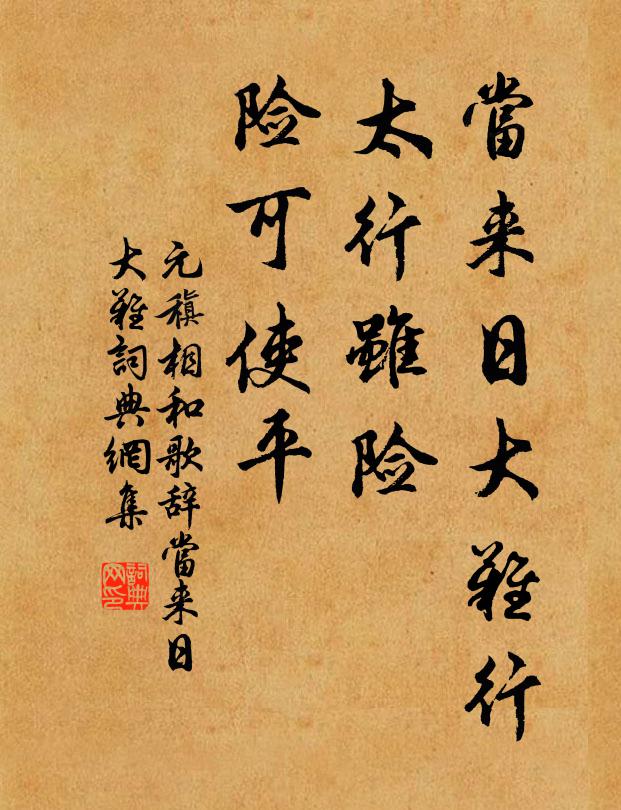 當来日大難行
太行雖险
险可使平
元稹相和歌辞當来日
大難詞典網集
詞典网印